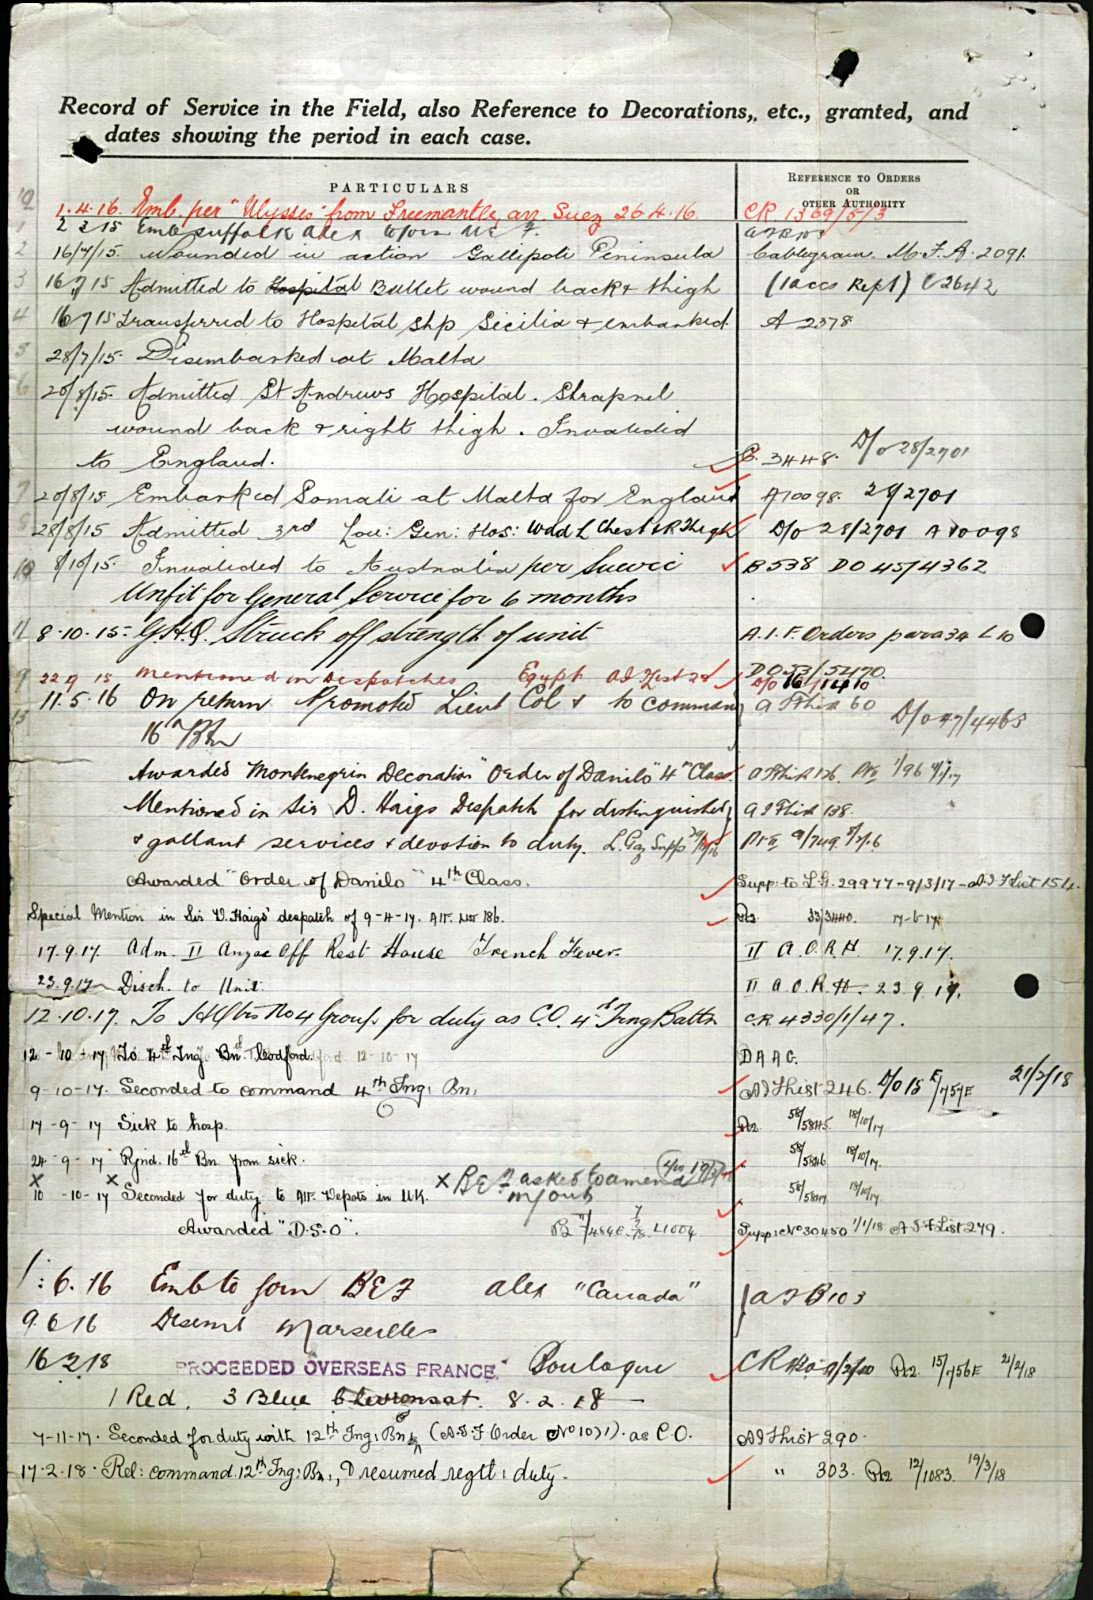 Record of Service in the Field, also Reference to Decorations, etc., granted, and
dates showing the period in each case.
PARTICULARS
REFERENCE TO ORDERS
OR
OTHER AUTHORITY
1.4.16. Emb. per "Ulysses" from Freemantle, arr. Suez 26.4.16. CR 1369/5/3
2 2 15 Emb Suffolk Alex
16/7/15. Wounded in action Gallipoli Peninsula Cablegram M.F.A. 2091.
16 7 15 Admitted to Hospital Bullet wound back & thigh (1accs Rept) C 2642
16 7 15 Transferred to Hospital Shp Sicilia & embarked A 2378
28/7/15. Disembarked at Malta
20/8/15. Admitted St Andrews Hospital. Shrapnel
wound back & right thigh. Invalided
to England. 3448. D/o 28/2701
20/8/15 Embarked Somali at Malta for England A10098. 28/2701
28/8/15 Admitted 3rd Lou: Gen: Hos: Wnd L Chest & R Thigh D/o 28/2701 A 10098
8/10/15. Invalided to Australia per Suevic B538 DO 45/4362
Unfit for General Service for 6 months
8.10.15. G.H.Q. Struck off strength of unit A.I.F. Orders para 34 L 10
22 9 15 Mentioned in Despatches Egypt DO 53/5470.
11.5.16 On return Promoted Lieut Col & to command 60 D/o 47/4463
16th Bn
Awarded Montenegrin Decoration "Order of Danilo" 4th Class.
Mentioned in Sir D. Haigs Despatch for distinguished 138.
& gallant services & devotion to duty. L. Gaz Supp
Awarded "Order of Danilo" 4th Class. Supp: to L.G. 29977-9/3/17 - A I F List 154.
Special Mention in Sir D. Haigs' despatch of 9-4-17. AIF. List 186. 33/3440.
17.9.17. Adm. II Anzac Off Rest House Trench Fever. II A.O.R.H. 17.9.17.
23.9.17 Disch. to Unit. II A.O.R.H. 23.9.17.
12.10.17. To HQtrs No 4 Group, for duty as C.O. 4th Trng Battn CR 4330/1/47.
12-10-17 To 4th Tng. Bn Codford. 12-10-17 DAAG.
9-10-17. Seconded to command 4th Tng: Bn: 246. D/o 15 21/2/18
17-9-17 Sick to hosp. 58/5845 18/10/17
24-9-17 Rjnd. 16th Bn from sick. 58/5846 18/10/17.
10-10-17 × Seconded for duty to AIF. Depots in UK. × BEF asked to amend 18/10/17
Awarded "D.S.O". Supp: No 30450 1/1/18 A I F List 279.
1.6.16 Emb to join BEF Alex "Canada" A F B103
9 6 16 Disemb Marseilles
16 2 18 PROCEEDED OVERSEAS FRANCE. Boulogne CR 15/756E 2/2/18
1 Red. 3 Blue Chevrons at. 8.2.18
7-11-17. Seconded for duty with 12th Tng: Bn: (A.I.F Order No 1071). as C.O. 290.
17-2-18. Rel: command 12th Tng: Bn:, & resumed regtl: duty. " 303. 12/1083. 19/3/18